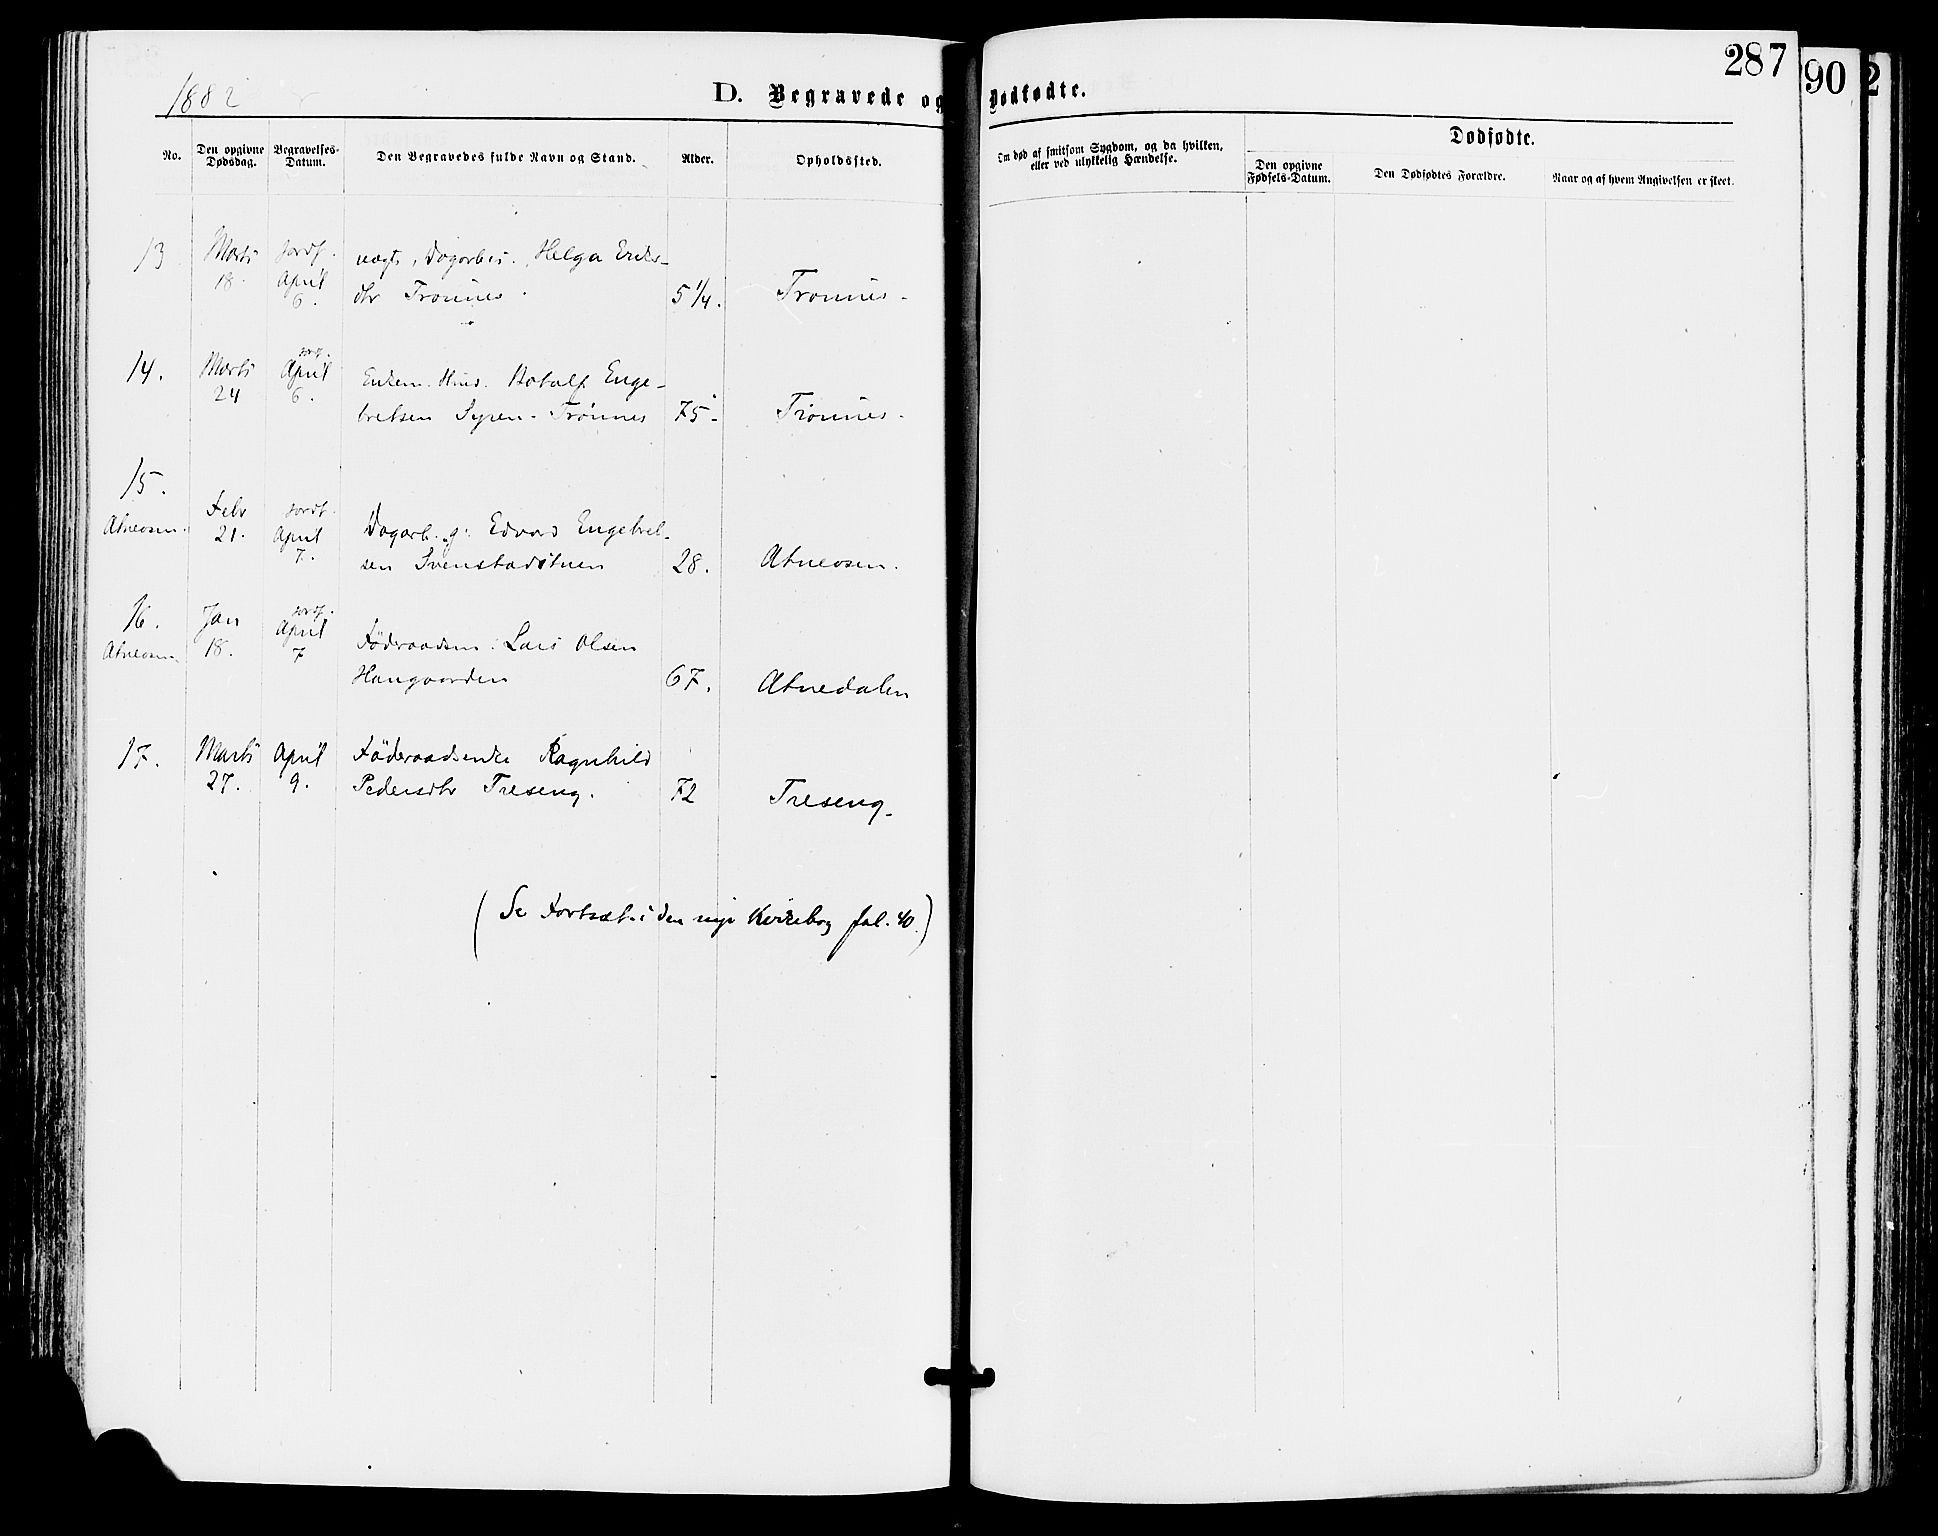 1882
D. Begravede og Dødfødte.
287
90
2
No.
Den opgivne Dødsdag.
Begravelses-Datum.
Den Begravedes fulde Navn og Stand.
Alder.
Opholdssted.
Om død af smitsom Sygdom, og da hvilken,
eller ved ulykkelig Hændelse.
Dødfødte.
Den opgivne Fødsels-Datum.
Den Dødfødtes Forældre.
Naar og af hvem Angivelsen er skeet.
13 Marts 18. Jordf. April 6. Dagarb: Helga
dtr Trønnes 5 1/4. Trønnes
14. Marts 24 Jordf. April 6. Enkem. Huus. Botolf Enge-
bretsen Trønnes 75 Trønnes
15.
Atneosen. Febr 21. Jordf. April 7. Dagarb. g: Edvard Engebret-
sen Svenstadstuen 28. Atneosen.
16.
Atneosen. Jan 18. Jordf. April 7 Føderaadsm: Lars Olsen
Haugaarden 67. Atnedalen
17. Marts 27. April 9. Føderaadsenke Ragnhild
Pedersdtr Treseng. 72 Treseng
(Se Fortsæt. i den nye Kirkebog fol. 40.)